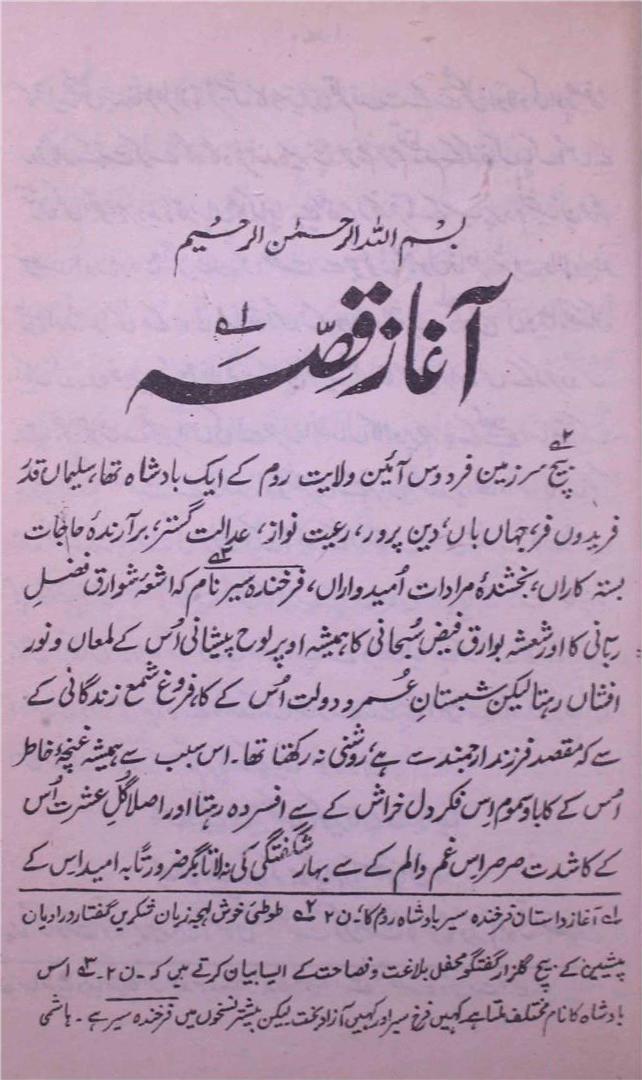 بسم اللہ الرحمٰن الرحیم
آغاز قصّہ ۱؎
۲؎
بیچ سرزمین فردوس آئین ولایت روم کے ایک بادشاہ تھا، سلیماں قدر
فریدوں فر، جہاں باں، دین پرور، رعیت نواز، عدالت گستر، برآرندۂ حاجات
بستہ کاراں، بخشندۂ مرادات اُمیدواراں، فرخندہ سیر۳؎ نام کہ اشعۂ شوارق فضلِ
ربّانی کا اور شعشہ بوارق فیض سُبحانی کا ہمیشہ اوپر لوح پیشانی اُس کے لمعاں و نور
افشاں رہتا لیکن شبستانِ عُمر و دولت اُس کے کا، فروغ شمع زندگانی کے
سے کہ مقصد فرزند ارجمند سے ہے، روشنی نہ رکھتا تھا۔ اس سبب سے ہمیشہ غنچۂ خاطر
اُس کے کا باد سموم اِس فکر دل خراش کے سے افسردہ رہتا اور اصلا گُلِ عشرت اُس
کے کا شدت صرصر اس غم و الم کے سے بہار شگفتگی کی نہ لاتا مگر ضرورتاً بہ امید اس کے
۱؎ آغاز داستان فرخندہ سیر بادشاہ روم کا۔ ن ۲ ۲؎ طوطئ خوش لہجہ زبان شکریں گفتار در ادیان
پیشین کے بیچ گلزار گفتگو محفل بلاغت و فصاحت کے ایسا بیان کرتے ہیں کہ ۔ ن ۲۔ ۳؎ اس
بادشاہ کا نام مختلف ملتا ہے کہیں فرخ سیر اور کہیں آزاد بخت لیکن بیشتر نسخوں میں فرخندہ سیر ہے ۔ ہاشمی